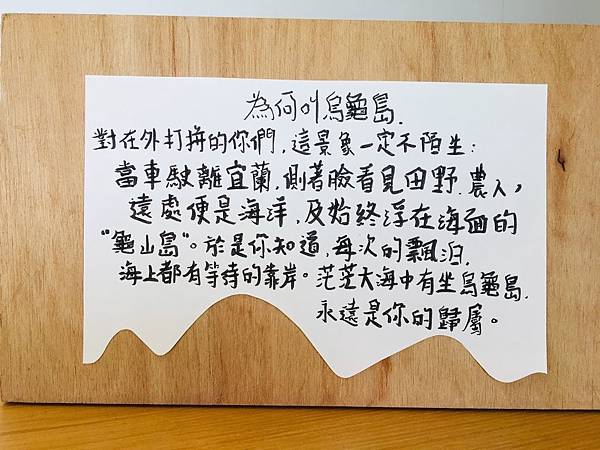 為何叫烏龜島.
對在外打拚的你們,這景象一定不陌生:
當車駛離宜蘭,側著臉看見田野.農人,
遠處便是海洋,及始終浮在海面的
"龜山島"。於是你知道,每次的飄泊.
海上都有等待的靠岸。茫茫大海中有坐烏龜島.
永遠是你的歸屬。